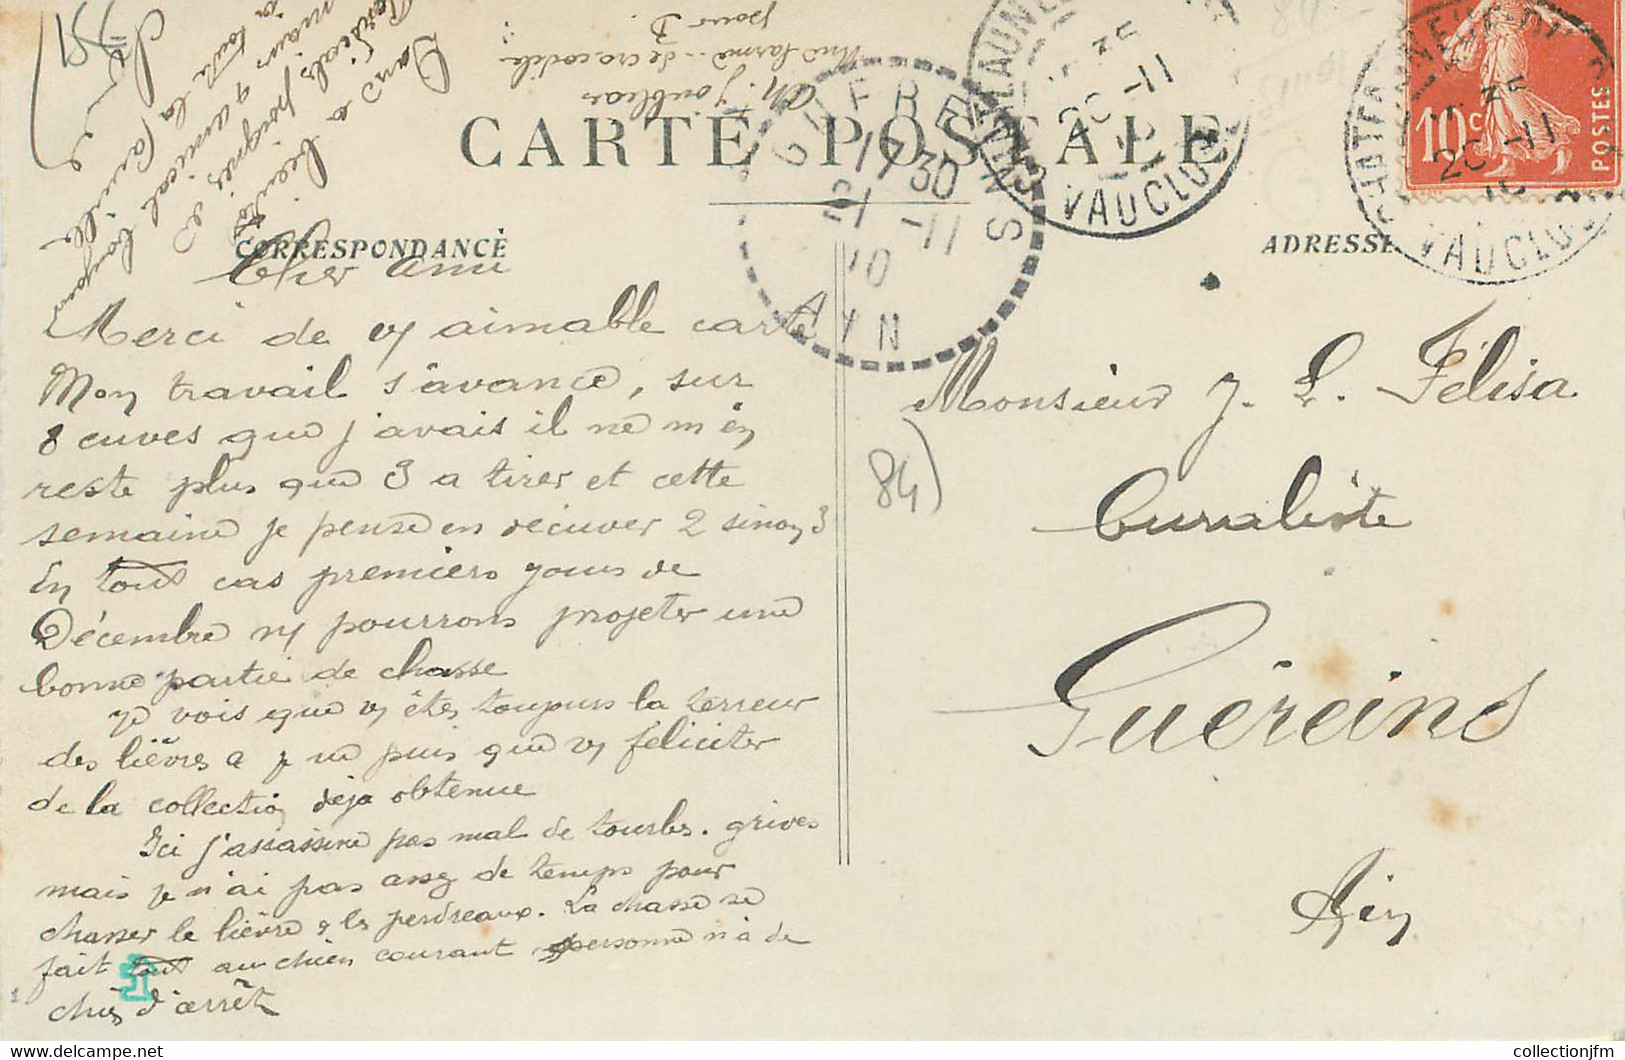 CARTE POSTALE
CORRESPONDANCE
ADRESSE
Cher Ami
Merci de vs aimable carte
Mon travail s'avance, sur
8 cuves que j'avais il ne m'en
reste plus que 3 a tirer et cette
semaine je pense en décuver 2 sinon 3
En tout cas premiers jours de
Décembre ns pourrons projeter une
bonne partie de chasse
Je vois que vs êtes toujours la terreur
des lièvres & je ne puis que vs feliciter
de la collection deja obtenue
Ici j'assassine pas mal de tourdes. grives
mais je n'ai pas assez de temps pour
chasser le lièvre & les perdreaux. La chasse se
fait tout au chien courant personne n'a de
chien d'arrêt
Dans a bientôt
Cordiales poignés de
main amical bonjour
a toute la famille
pour
crocodile
Monsieur J. L. Félisa
Buraliste
Guéreins
Ain
84)
10c
POSTES
VAUCLUSE
20 -11
10
VAUCLUSE
20 -11
10
17 30
21 -11
10
AIN
1
collectionjfm